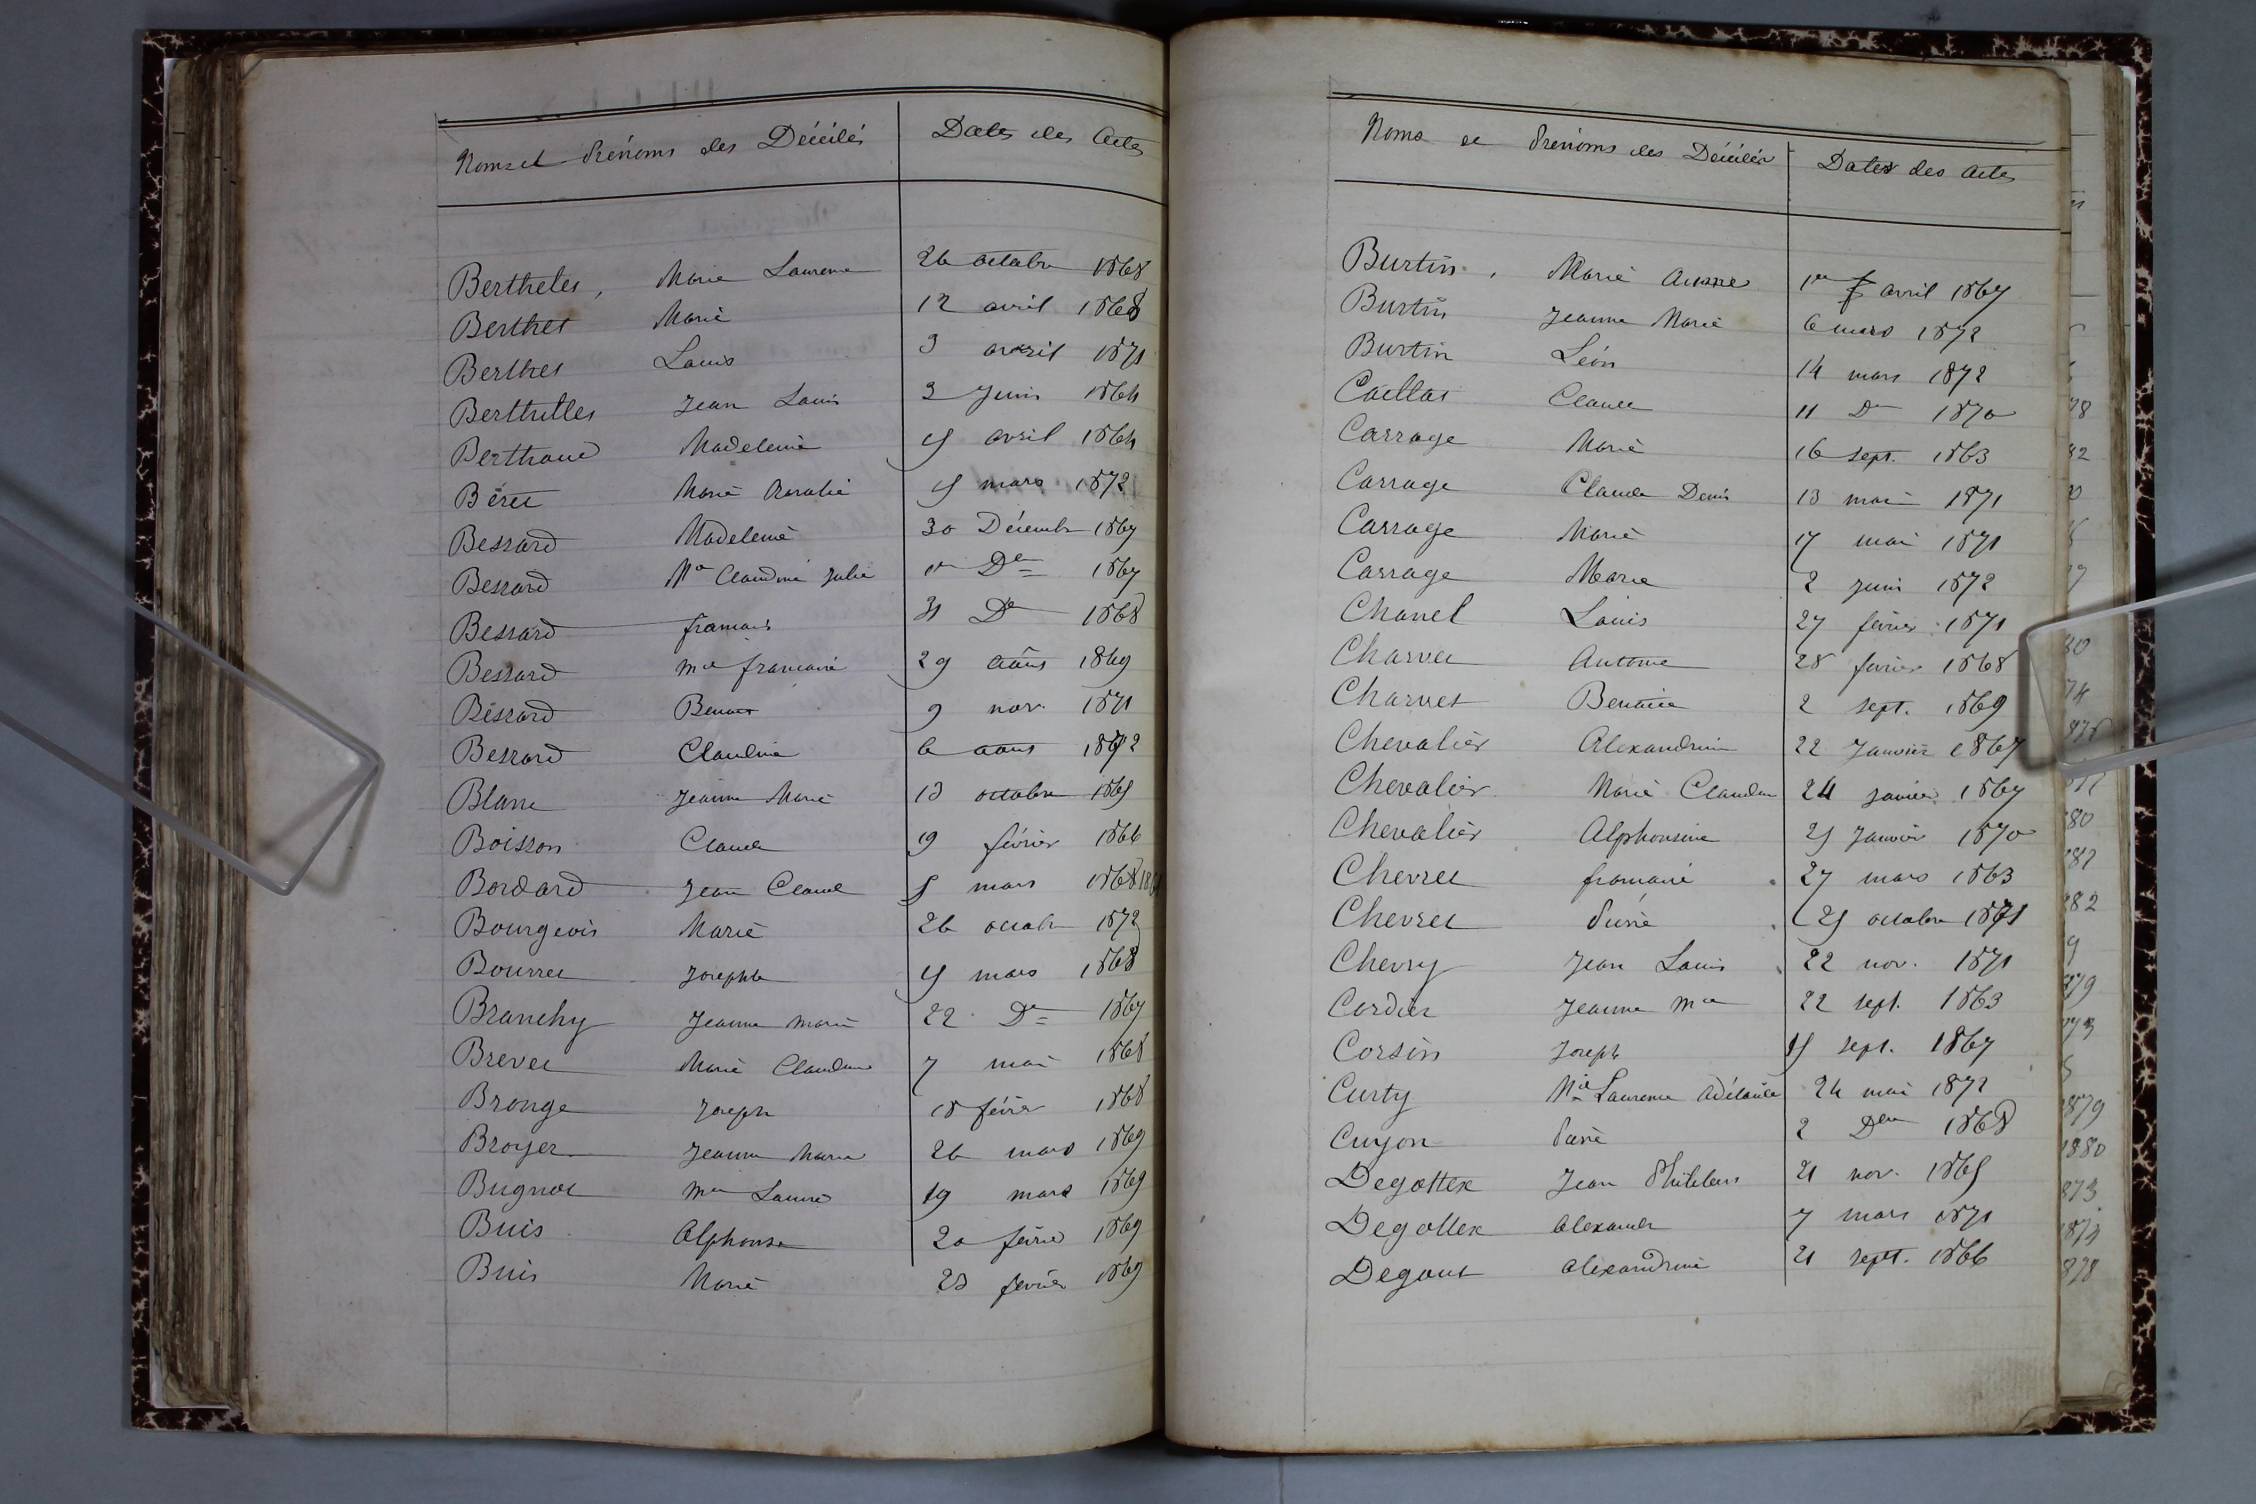 Noms et Prénoms des Décédés Dates des Actes
Berthelet, Marie Laurence 26 octobre 1868
Berthet Marie 12 avril 1868
Berthet Louis 3 avril 1871
Berthillet Jean Louis 3 Juin 1864
Berthaud Madeleine 15 avril 1864
Béret Marie Rosalie 15 mars 1872
Bessard Madeleine 30 Décembre 1867
Bessard Mie Claudine Julie 1er De 1867
Bessard francois 31 De 1868
Bessard mie francoise 29 août 1869
Bessard Benoit 9 nov. 1871
Bessard Claudine 6 aout 1872
Blanc Jeanne Marie 13 octobre 1865
Boisson Claude 19 février 1866
Bordard Jean Claude 5 mars 1868
Bourgeois Marie 26 octobre 1872
Bourret Josephte 15 mars 1868
Branchy Jeanne marie 22 De 1867
Brevet Marie Claudine 7 mai 1868
Bronge Joseph 18 février 1868
Broyer Jeanne Marie 26 mars 1869
Bugnot mie Laure 19 mars 1869
Buis Alphonse 20 février 1869
Buis Marie 23 février 1869
Noms et Prénoms des Décédés Dates des Actes
Burtin, Marie 1er avril 1867
Burtin Jeanne Marie 6 mars 1872
Burtin Léon 14 mars 1872
Caillat Claude 11 De 1870
Carrage Marie 16 sept. 1863
Carrage Claude Denis 13 mai 1871
Carrage Marie 17 mai 1871
Carrage Marie 2 juin 1872
Chanel Louis 27 février 1871
Charvet Antoine 28 fevrier 1868
Charvet Benoite 2 sept. 1869
Chevalier Alexandrine 22 Janvier 1867
Chevalier Marie Claudine 24 janvier 1867
Chevalier Alphonsine 25 Janvier 1870
Chevret francoise 27 mars 1863
Chevret Pierre 25 octobre 1871
Chevry Jean Louis 22 nov. 1871
Cordier Jeanne Mie 22 sept. 1863
Corsin Joseph 15 sept. 1867
Curty Mie Laurence Adélaide 24 mai 1872
Cuyon Pierre 2 Dem 1868
Degottex Jean Philibert 21 nov. 1865
Degottex Alexandre 7 mars 1871
Degout Alexandrine 21 sept. 1866